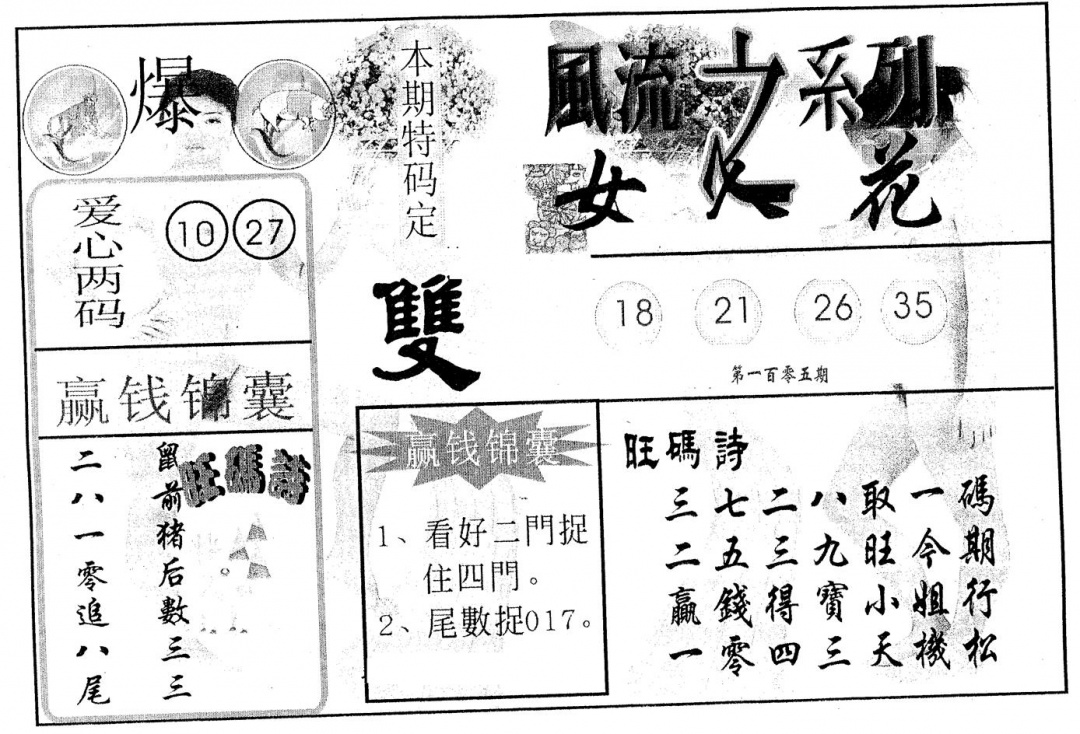 爆
爱心两码
10 27
赢钱锦囊
旺碼詩
鼠前猪后數三三
二八一零追八尾
本期特码定
雙
風流之系列
女人花
18 21 26 35
第一百零五期
赢钱锦囊
1、看好二門捉
住四門。
2、尾數捉017。
旺碼詩
三七二八取一碼
二五三九旺今期
贏錢得寶小姐行
一零四三天機松